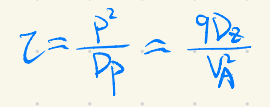 τ = p² / D_p = 9D_z / V_A²